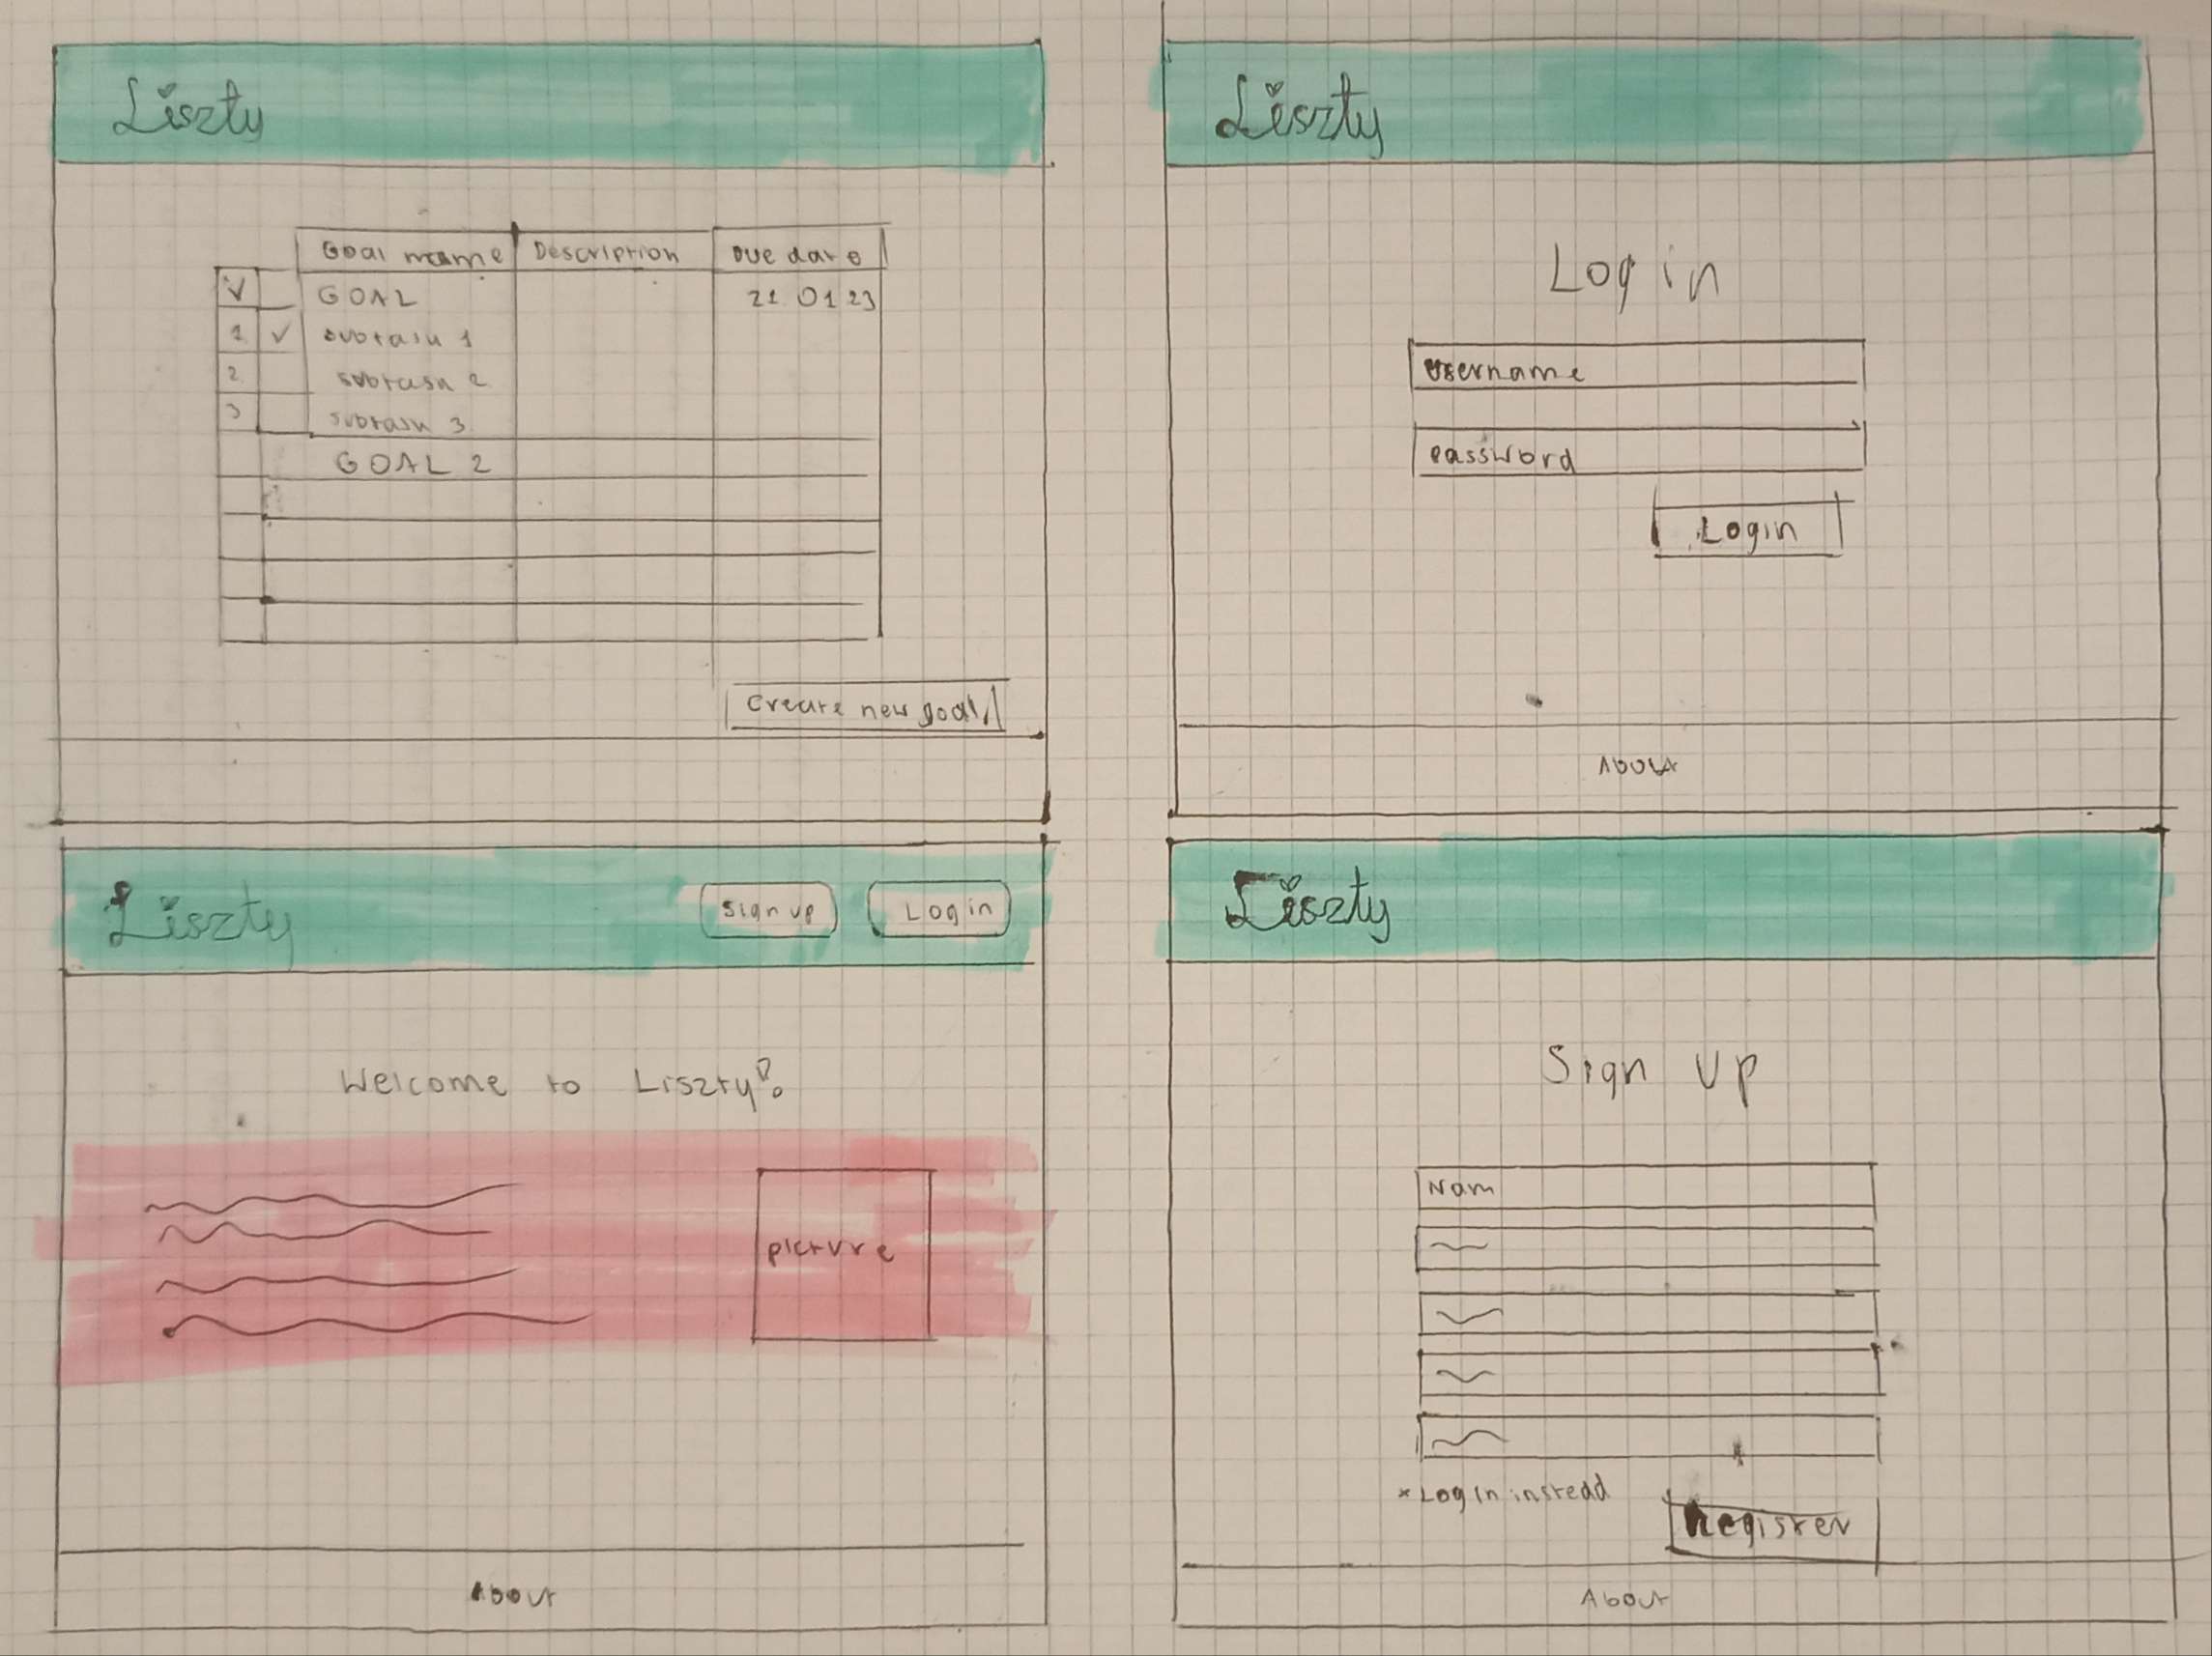 Liszty
Goal name Description Due date
V GOAL 21 01 23
1 ✓ subtask 1
2 subtask 2
3 subtask 3
GOAL 2
Create new goal
Liszty
Log in
username
password
Login
About
Liszty Sign up Log in
Welcome to Liszty!
picture
About
Liszty
Sign up
Nam
* Log in instead
Register
About